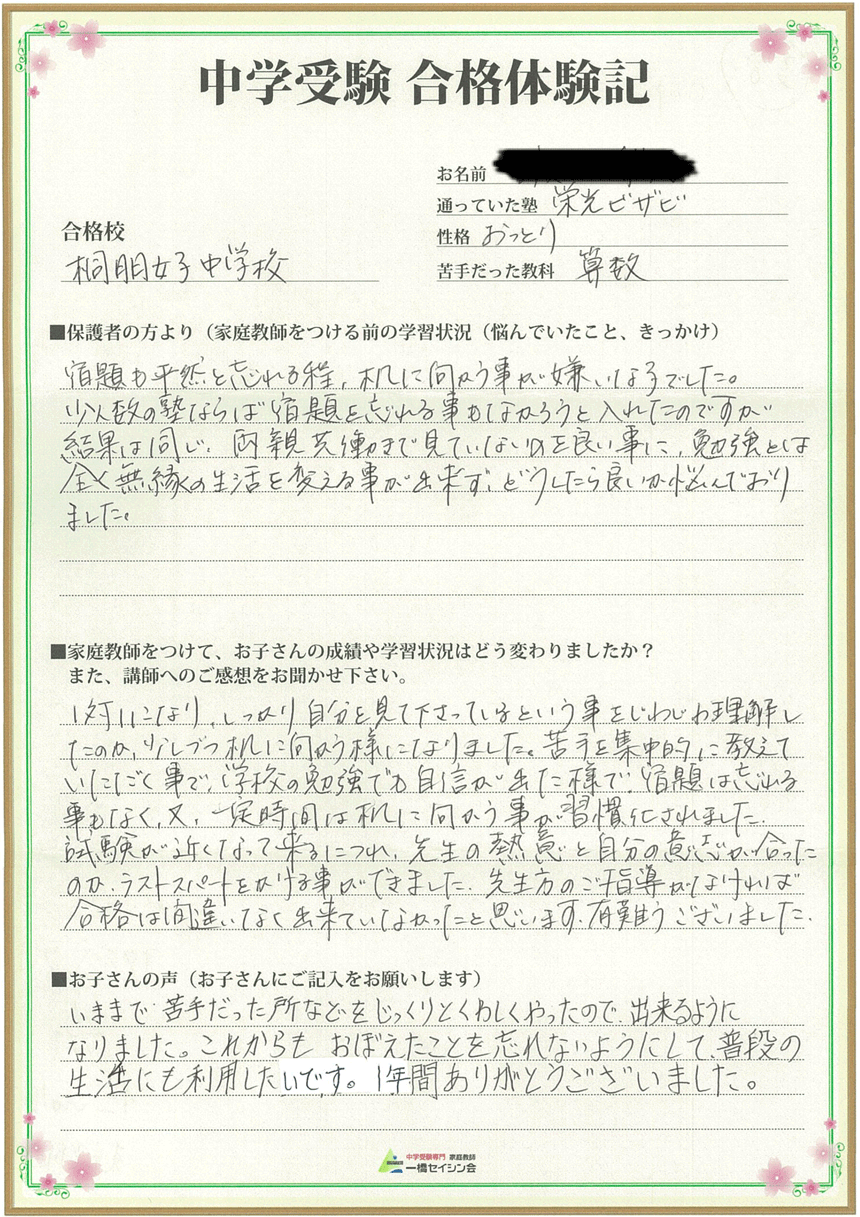 中学受験 合格体験記
お名前
通っていた塾 栄光ビザビ
合格校
性格 おっとり
桐朋女子中学校
苦手だった教科 算数
■保護者の方より（家庭教師をつける前の学習状況（悩んでいたこと、きっかけ）
宿題も平然と忘れる程、机に向かう事が嫌いな子でした。
少人数の塾ならば宿題を忘れる事もなかろうと入れたのですが
結果は同じ。両親共働きで見ていないのを良い事に、勉強とは
全く無縁の生活を変える事が出来ず、どうしたら良いか悩んでおり
ました。
■家庭教師をつけて、お子さんの成績や学習状況はどう変わりましたか？
また、講師へのご感想をお聞かせ下さい。
1対1になり、しっかり自分を見て下さっているという事をじわじわ理解し
たのか、少しづつ机に向かう様になりました。苦手を集中的に教えて
いただく事で、学校の勉強でも自信が出た様で、宿題は忘れる
事もなく、又、一定時間は机に向かう事が習慣化されました。
試験が近くなって来るにつれ、先生の熱意と自分の意志が合った
のか、ラストスパートをかける事ができました。先生方のご指導がなければ
合格は間違いなく出来ていなかったと思います。有難うございました。
■お子さんの声（お子さんにご記入をお願いします）
いままで苦手だった所などをじっくりとくわしくやったので、出来るように
なりました。これからも おぼえたことを忘れないようにして、普段の
生活にも利用したいです。1年間ありがとうございました。
中学受験専門 家庭教師
一橋セイシン会